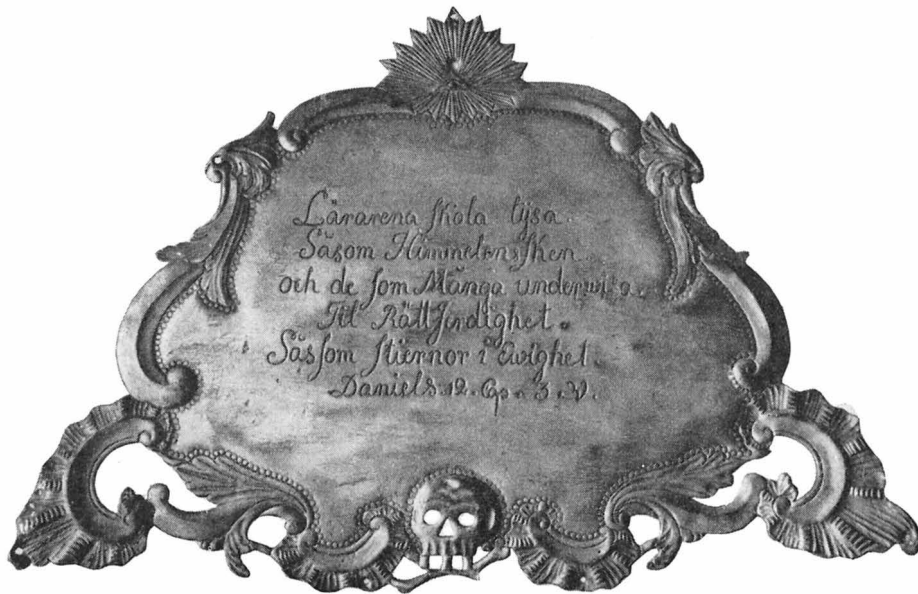 Lärarena skola lysa
Såsom Himmelens sken
och de som Många underwisa
Til Rättferdighet.
Såssom stiernor i Ewighet.
Daniels. 12. Cp. 3. V.